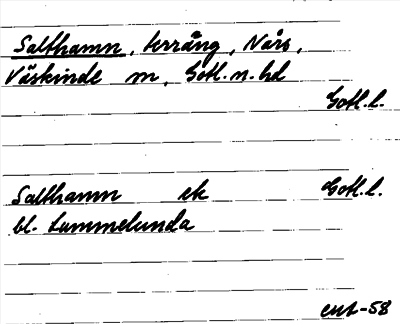 Salthamn, terräng, Närs,
Väskinde sn, Gotl. n. hd
Gotl. l.
Salthamn ek Gotl. l.
bl. Lummelunda